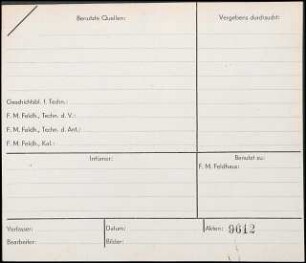 Benutzte Quellen:
Vergebens durchsucht:
Geschichtsbl. f. Techn.:
F. M. Feldh., Techn. d. V.:
F. M. Feldh., Techn. d. Ant.:
F. M. Feldh., Kal.:
Irrtümer:
Benutzt zu:
F. M. Feldhaus:
Verfasser:
Datum:
Akten: 9612
Bearbeiter:
Bilder: